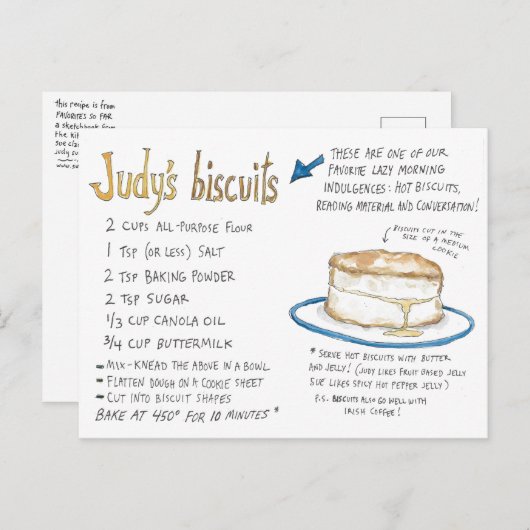 this recipe is from
FAVORITES SO FAR
a sketchbook from
the kit
sue cla
judy su
www.su
Judy's biscuits
2 CUPS ALL-PURPOSE FLOUR
1 TSP (OR LESS) SALT
2 TSP BAKING POWDER
2 TSP SUGAR
1/3 CUP CANOLA OIL
3/4 CUP BUTTERMILK
- MIX-KNEAD THE ABOVE IN A BOWL
- FLATTEN DOUGH ON A COOKIE SHEET
- CUT INTO BISCUIT SHAPES
BAKE AT 450° FOR 10 MINUTES *
THESE ARE ONE OF OUR
FAVORITE LAZY MORNING
INDULGENCES: HOT BISCUITS,
READING MATERIAL AND CONVERSATION!
BISCUITS CUT IN THE
SIZE OF A MEDIUM
COOKIE
* SERVE HOT BISCUITS WITH BUTTER
AND JELLY! (JUDY LIKES FRUIT BASED JELLY
SUE LIKES SPICY HOT PEPPER JELLY)
P.S. BISCUITS ALSO GO WELL WITH
IRISH COFFEE!